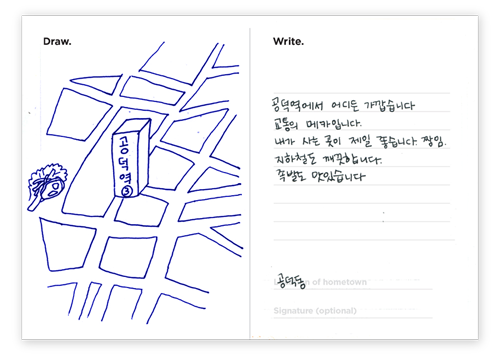 Draw.
Write.
공덕역에서 어디든 가깝습니다
교통의 메카입니다.
내가 사는 곳이 제일 좋습니다 짱임.
지하철도 깨끗합니다.
족발도 맛있습니다
공덕동
of hometown
Signature (optional)